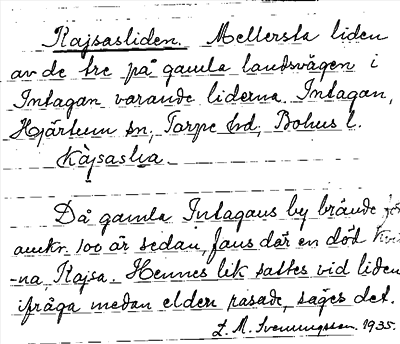 Kajsasliden. Mellersta liden
av de tre på gamla landsvägen i
Intagan varande liderna. Intagan,
Hjärtum sn, Torpe hd, Bohus l.
Kàjsaslia
Då gamla Intagans by brände för
omkr. 100 år sedan, fans där en död kvin
-na, Kajsa. Hennes lik sattes vid liden
ifråga medan elden rasade, säges det.
L. M. Svenungsson. 1935.